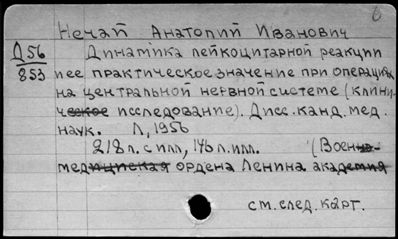 б
Нечай Анатолий Иванович
Д56 Динамика лейкоцитарной реакции
853 и ее практическое значение при операциях
на центральной нервной системе (клини-
ческое исследование). Дисс. канд. мед.
наук. Л, 1956
218 л. с илл, 146 л. илл. (Воен­но-
медицинская ордена Ленина академия
см. след. карт.